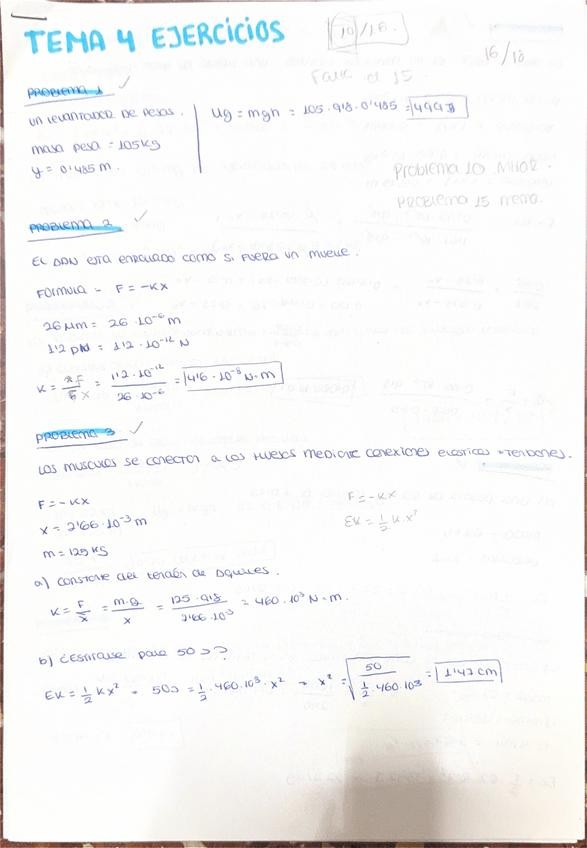 TEMA 4 EJERCICIOS
10/16.
16/18
Falta el 15.
PROBLEMA 1 ✓
UN LEVANTADOR DE PESAS.
masa pesa = 105 kg
y = 0'485 m.
Ug = mgh = 105 · 9'8 · 0'485 = 499 J
Problema 10 MHAR.
PROBLEMA 15 MERO.
PROBLEMA 2 ✓
EL ADN ESTA ENROLLADO COMO SI FUERA UN MUELLE.
FORMULA = F = -KX
26 μm = 26 · 10⁻⁶ m
1'2 pN = 1'2 · 10⁻¹² N
K = F/X = 1'2 · 10⁻¹² / 26 · 10⁻⁶ = 4'6 · 10⁻⁸ N·m
PROBLEMA 3 ✓
LOS MUSCULOS SE CONECTAN A LOS HUESOS MEDIANTE CONEXIONES ELASTICAS = TENDONES.
F = -KX
x = 2'66 · 10⁻³ m
m = 125 kg
F = -KX
EK = 1/2 K·x²
a) CONSTANTE del tendón de Aquiles.
K = F/x = m·g/x = 125 · 9'8 / 2'66 · 10³ = 460 · 10³ N·m.
b) ¿Estirarse para 50 J?
EK = 1/2 K x² = 50 J = 1/2 · 460 · 10³ · x² = x² = √(50 / 1/2 · 460 · 10³) = 1'47 cm